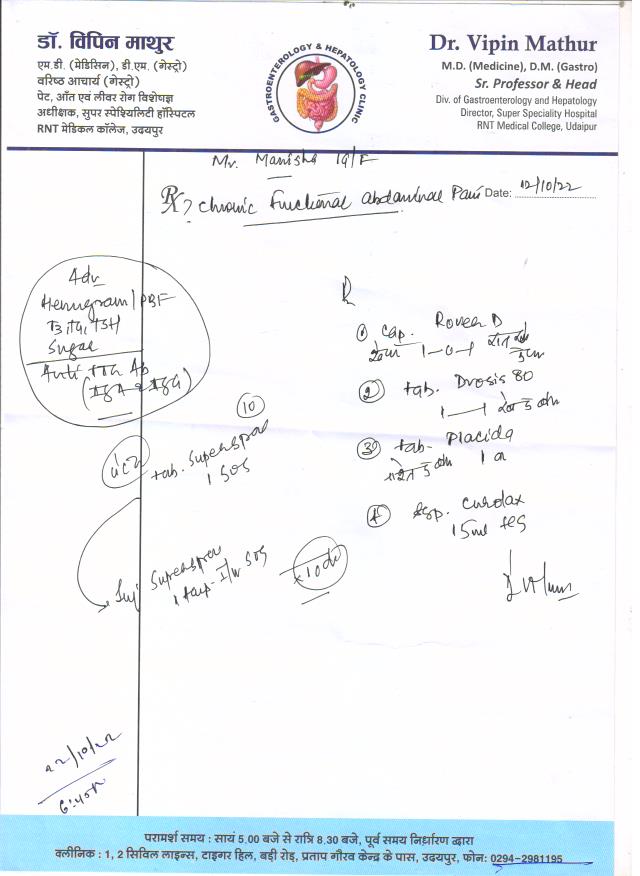 डॉ. विपिन माथुर
एम.डी. (मेडिसिन), डी.एम. (गेस्ट्रो)
वरिष्ठ आचार्य (गेस्ट्रो)
पेट, आँत एवं लीवर रोग विशेषज्ञ
अधीक्षक, सुपर स्पेश्यिलिटी हॉस्पिटल
RNT मेडिकल कॉलेज, उदयपुर
GASTROENTEROLOGY & HEPATOLOGY CLINIC
Dr. Vipin Mathur
M.D. (Medicine), D.M. (Gastro)
Sr. Professor & Head
Div. of Gastroenterology and Hepatology
Director, Super Speciality Hospital
RNT Medical College, Udaipur
Manisha 19/F
Chronic Functional abdominal Pain Date: 12/10/22
Adv
Hemogram/PBF
TSH
Sugar
Anti TTG Ab
(IGA & IGG)
R
① Cap. D
1-0-1
② tab. Drosis 80
1—1
tab- Placida
④ Syp.
15ml
⑩
tab. Superspas
1 SOS
Inj Superspas
1 amp- I/M SOS
x10d
22/10/22
परामर्श समय : सायं 5.00 बजे से रात्रि 8.30 बजे, पूर्व समय निर्धारण द्वारा
क्लीनिक : 1, 2 सिविल लाइन्स, टाइगर हिल, बड़ी रोड़, प्रताप गौरव केन्द्र के पास, उदयपुर, फोन: 0294-2981195